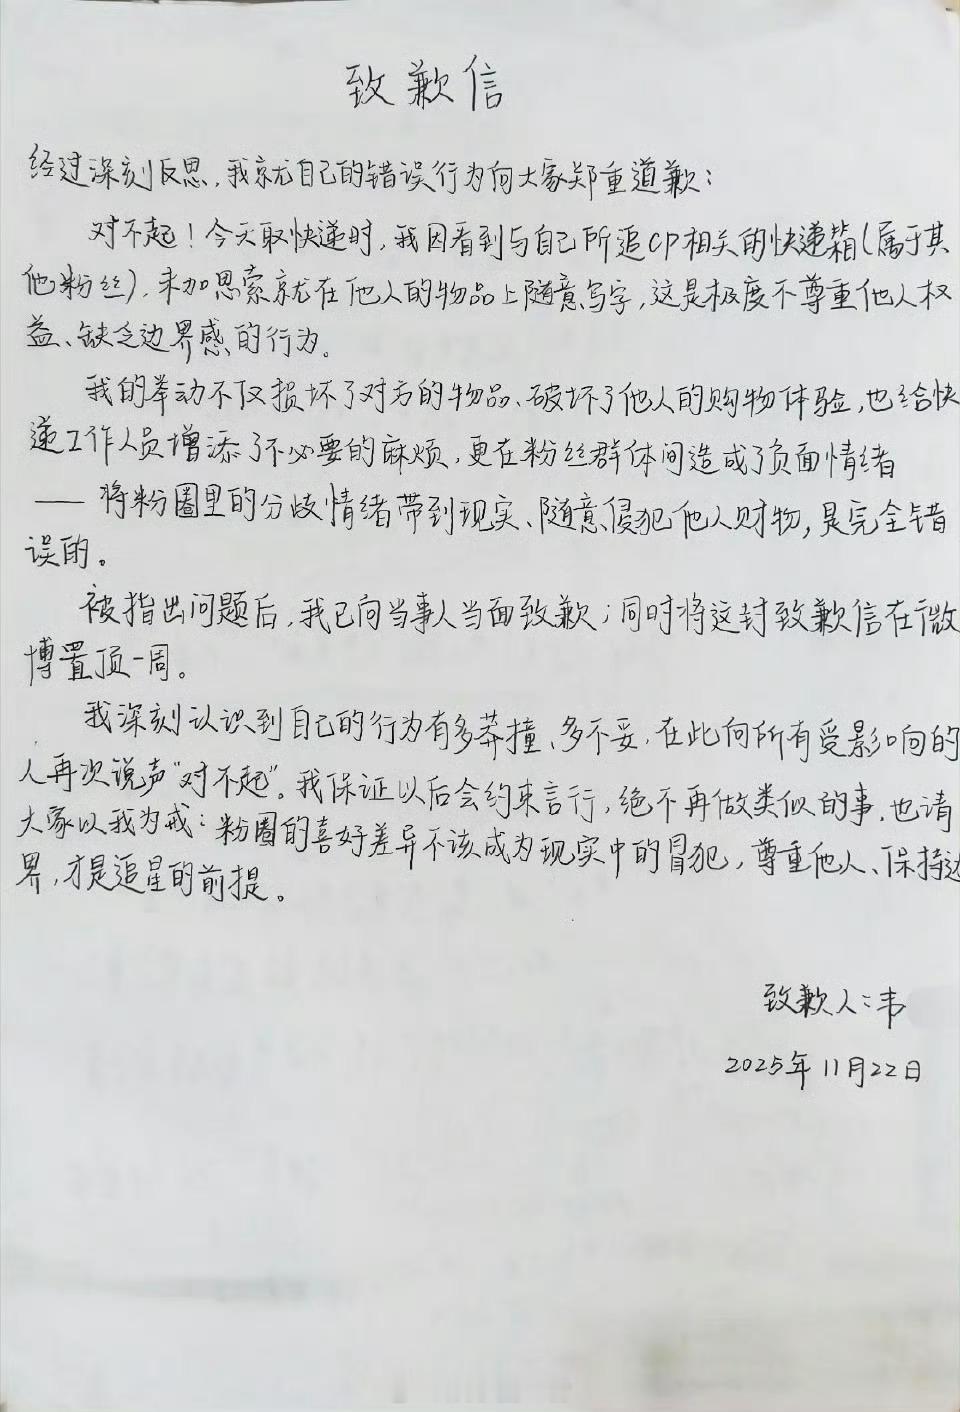 致歉信
经过深刻反思，我就自己的错误行为向大家郑重道歉：
对不起！今天取快递时，我因看到与自己所追CP相关的快递箱（属于其
他粉丝），未加思索就在他人的物品上随意写字，这是极度不尊重他人权
益、缺乏边界感的行为。
我的举动不仅损坏了对方的物品、破坏了他人的购物体验，也给快
递工作人员增添了不必要的麻烦，更在粉丝群体间造成了负面情绪
——将粉圈里的分歧情绪带到现实、随意侵犯他人财物，是完全错
误的。
被指出问题后，我已向当事人当面致歉；同时将这封致歉信在微
博置顶一周。
我深刻认识到自己的行为有多莽撞、多不妥，在此向所有受影响的
人再次说声“对不起”。我保证以后会约束言行，绝不再做类似的事，也请
大家以我为戒：粉圈的喜好差异不该成为现实中的冒犯，尊重他人、保持边
界，才是追星的前提。
致歉人：韦
2025年11月22日